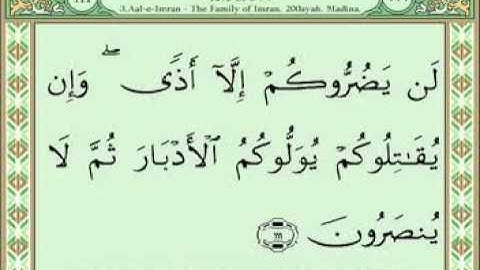 3.Aal-e-Imran - The Family of Imran. 200ayah. Madina.
لَن يَضُرُّوكُمْ إِلَّآ أَذًى ۖ وَإِن
يُقَـٰتِلُوكُمْ يُوَلُّوكُمُ ٱلْأَدْبَارَ ثُمَّ لَا
يُنصَرُونَ ١١١